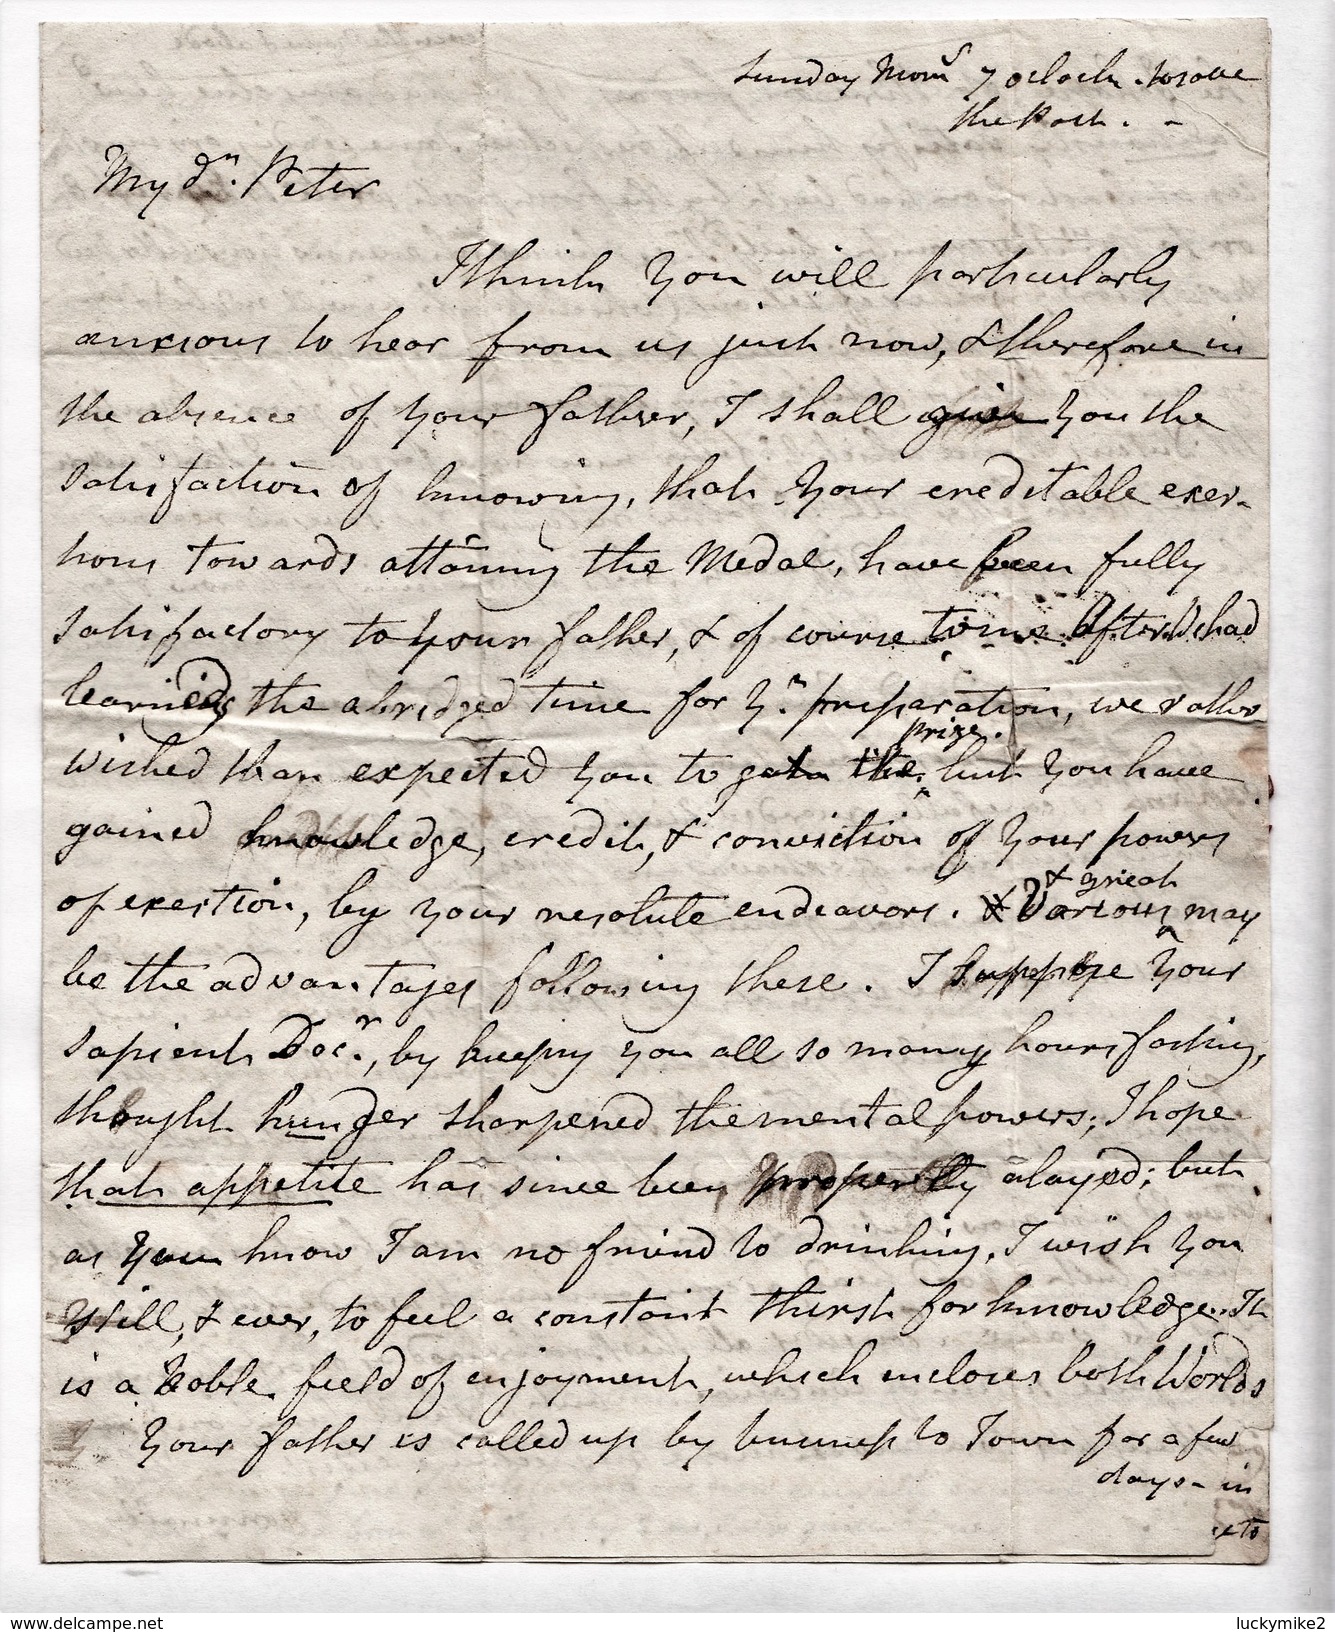 Sunday Morn.g 7 oclock. to save
the Post. -
My dr. Peter
I think you will particularly
anxious to hear from us just now, & therefore in
the absence of your father, I shall give you the
satisfaction of knowing, that your creditable exer-
tions towards attaining the Medal, have been fully
satisfactory to your father, & of course to me. After had
learning the abridged time for yr. preparation, we rather
prize.
wished than expected you to gain the but you have
gained knowledge, credit, & conviction of your powers
& great
of exertion, by your resolute endeavors. & Various may
be the advantages following these. I suppose your
sapient Docr., by keeping you all so many hours fasting,
thought hunger sharpened the mental powers; I hope
that appetite has since been properly alayed; but
as you know I am no friend to drinking, I wish you
still, & ever, to feel a constant thirst for knowledge. It
is a Noble field of enjoyment, which incloses both Worlds
Your father is called up by business to Town for a few
days - in
www.delcampe.net
luckymike2